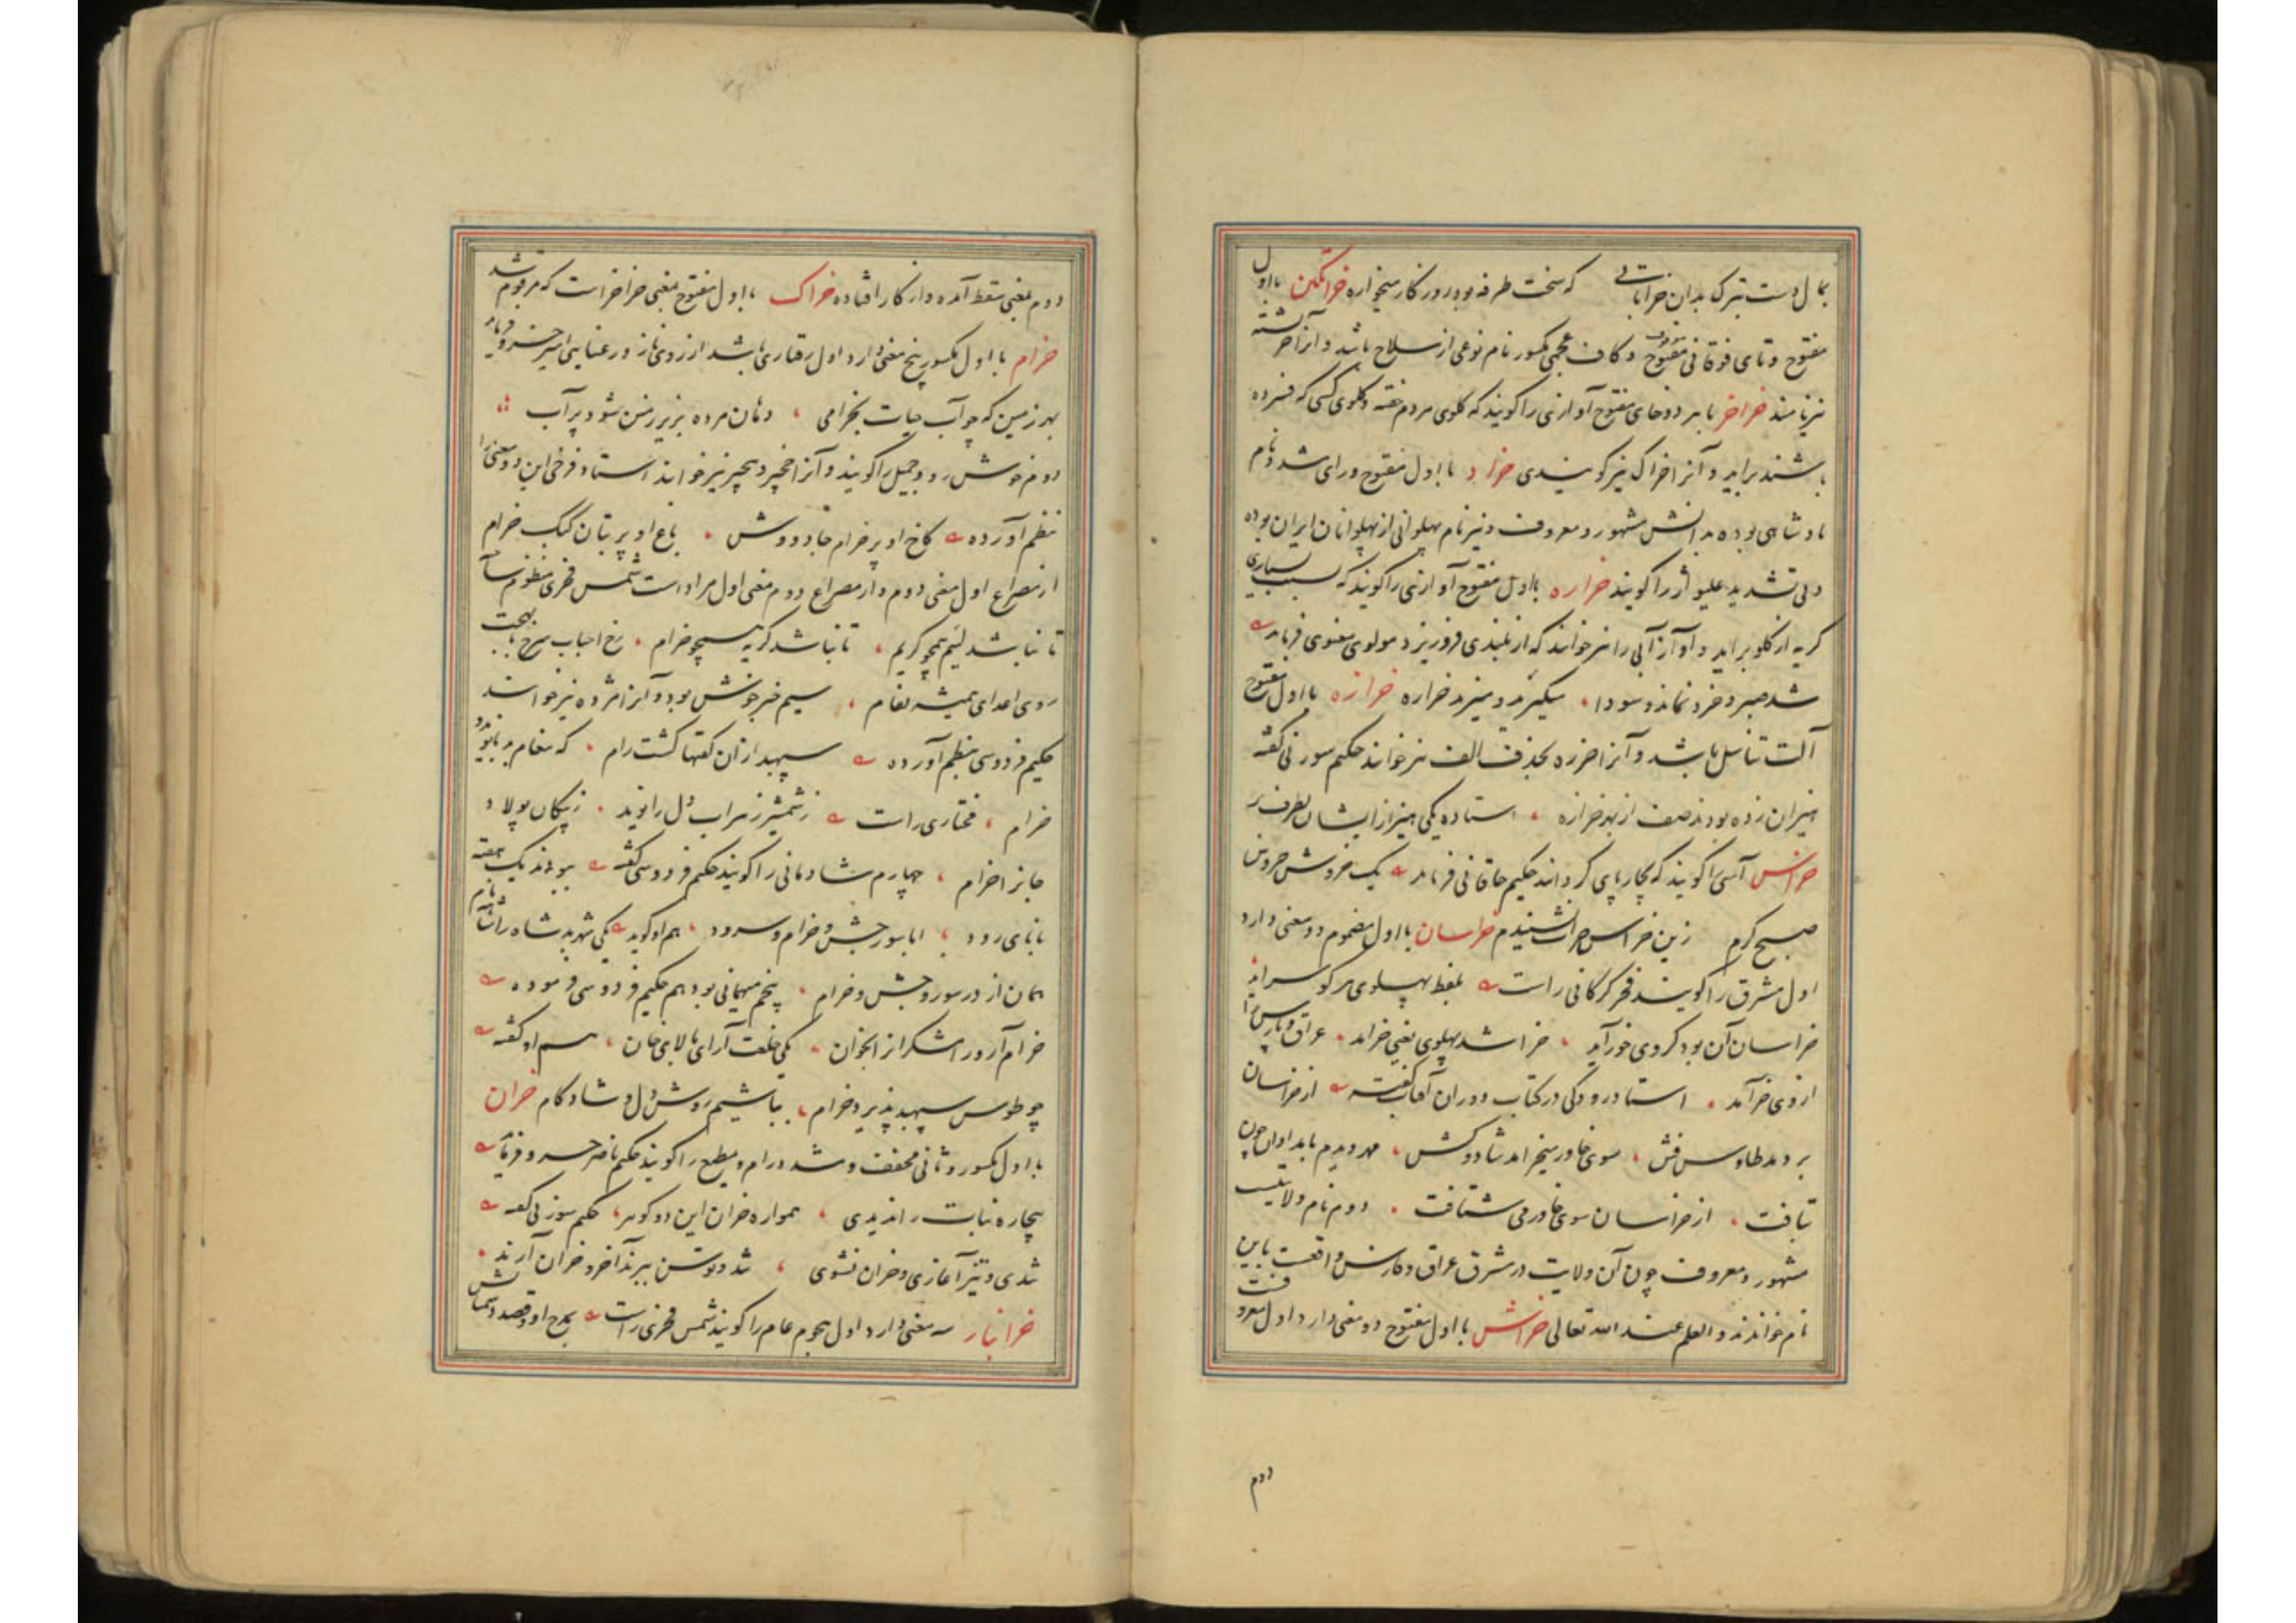 بمال دست تبرک بدان خراباتی که سخت طرفه بود روزگار میخواره خراتکین بااول
مفتوح و تای فوقانی مفتوح و کاف عجمی مکسور نام نوعی از سلاح باشد و آنرا خرشته
نیز نامند خراخر با هر دو خای مفتوح آوازی را گویند که از گلوی مردم خفته و گلوی کسی که فشرده
باشند براید و آنرا خراک نیز گویندی خراد با اول مفتوح و رای مشدد نام
پادشاهی بوده بدانش مشهور و معروف و نیز نام پهلوانی از پهلوانان ایران بوده
و بی تشدید علیواژ را گویند خراره بااول مفتوح آوازی را گویند که بسبب بسیاری
گریه از گلو براید و آواز آبی را نیز خوانند که از بلندی فرو ریزد مولوی معنوی فرماید
شد صبر و خرد نماند و سودا میگرید و میزند خراره خرازه بااول مفتوح
آلت تناسل باشد و آنرا خرزه بحذف الف نیز خوانند حکیم سوزنی گفته
هیزان زده بودند صف از بهر خرازه استاده یکی هیز از ایشان بطرف بر
خراس آسی را گویند که بچارپای گردانند حکیم خاقانی فرماید یک خروش خروس
صبح کرم زین خراس خراب نشنیدم خراسان بااول مضموم دو معنی دارد
اول مشرق را گویند فخر گرگانی راست بلفظ پهلوی هر کو سراید
خراسان آن بود کز وی خور آید خراسد پهلوی یعنی خراید عراق و پارس را
ازوی خور آمد استاد رودکی در کتاب دوران آفتاب گفته از خراسان
بر دمد طاوس فش سوی خاور میخرامد شاد و کش مهر دیدم بامدادان چون
بتافت از خراسان سوی خاور می شتافت دوم نام ولایتیست
مشهور و معروف چون آن ولایت در مشرق عراق و فارس واقعست باین
نام خواندند و العلم عند الله تعالی خراش بااول مفتوح دو معنی دارد اول معروفست
دوم
دوم بمعنی سقط آمده و از کار افتاده خراک بااول مفتوح بمعنی خراخر است که مرقوم شد
خرام با اول مکسور پنج معنی دارد اول رفتاری باشد از روی ناز و رعنایی امیر خسرو فرماید
بهر زمین که چو آب حیات بخرامی دهان مرده بزیر زمین شود پر آب
دوم خوش رو و جمیل را گویند و آنرا خجیر و هجیر نیز خوانند استاد فرخی این دو معنی را
نظم آورده کاخ او پر خرام جادو وش باغ او پر بتان کبک خرام
از مصراع اول معنی دوم و از مصراع دوم معنی اول مراد است شمس فخری منظوم ساخته
تا نباشد لئیم همچو کریم تا نباشد کریه همچو خرام رخ احباب سرخ بابهجت
روی اعدای همیشه نغام سیم خبر خوش بود و آنرا مژده نیز خوانند
حکیم فردوسی بنظم آورده سپهبد از آن گفتها گشت رام که پیغام بد با نوید و
خرام مختاری راست ز شمشیر زهراب دل را نوید ز پیکان پولاد
جانرا خرام چهارم شادمانی را گویند حکیم فردوسی گفته ببودند یک هفته
با نای رود ابا سور جشن و خرام و سرود هم او گوید یکی شهر بد شاه را شاد نام
همان از در سور و جشن و خرام پنجم مهمانی بود هم حکیم فردوسی فرموده
خرام آر و را لشکر از ایخوان یکی خلعت آرای بالای خان هم او گفته
چو طوس سپهبد پذیرد خرام بباشیم روشن دل و شادکام خران
بااول مکسور و ثانی مخفف و مشدد رام و مطیع را گویند حکیم ناصر خسرو فرماید
بیچاره نبات را ندیدی همواره خران این دو گوهر حکیم سوزنی گفته
شدی و تیز آغازی و خران نشوی شد و توسن ببرند آخر و خران آرند
خرانبار سه معنی دارد اول هجوم عام را گویند شمس فخری راست بمدح او و قصد دشمنانش